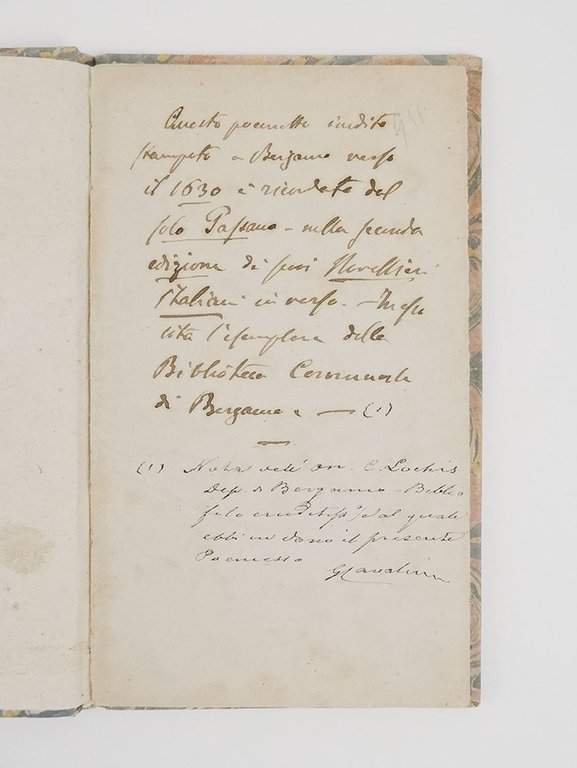 Questo poemetto inedito
stampato a Bergamo verso
il 1630 è ricordato dal
solo Passano - nella seconda
edizione di suoi Novellieri
Italiani in verso. -
cita l'esemplare della
Biblioteca Comunale
di Bergamo. — (1)
(1) Nota dell' on. C. Lochis
Dep. di Bergamo - Biblio
filo eruditiss° dal quale
ebbi in dono il presente
Poemetto